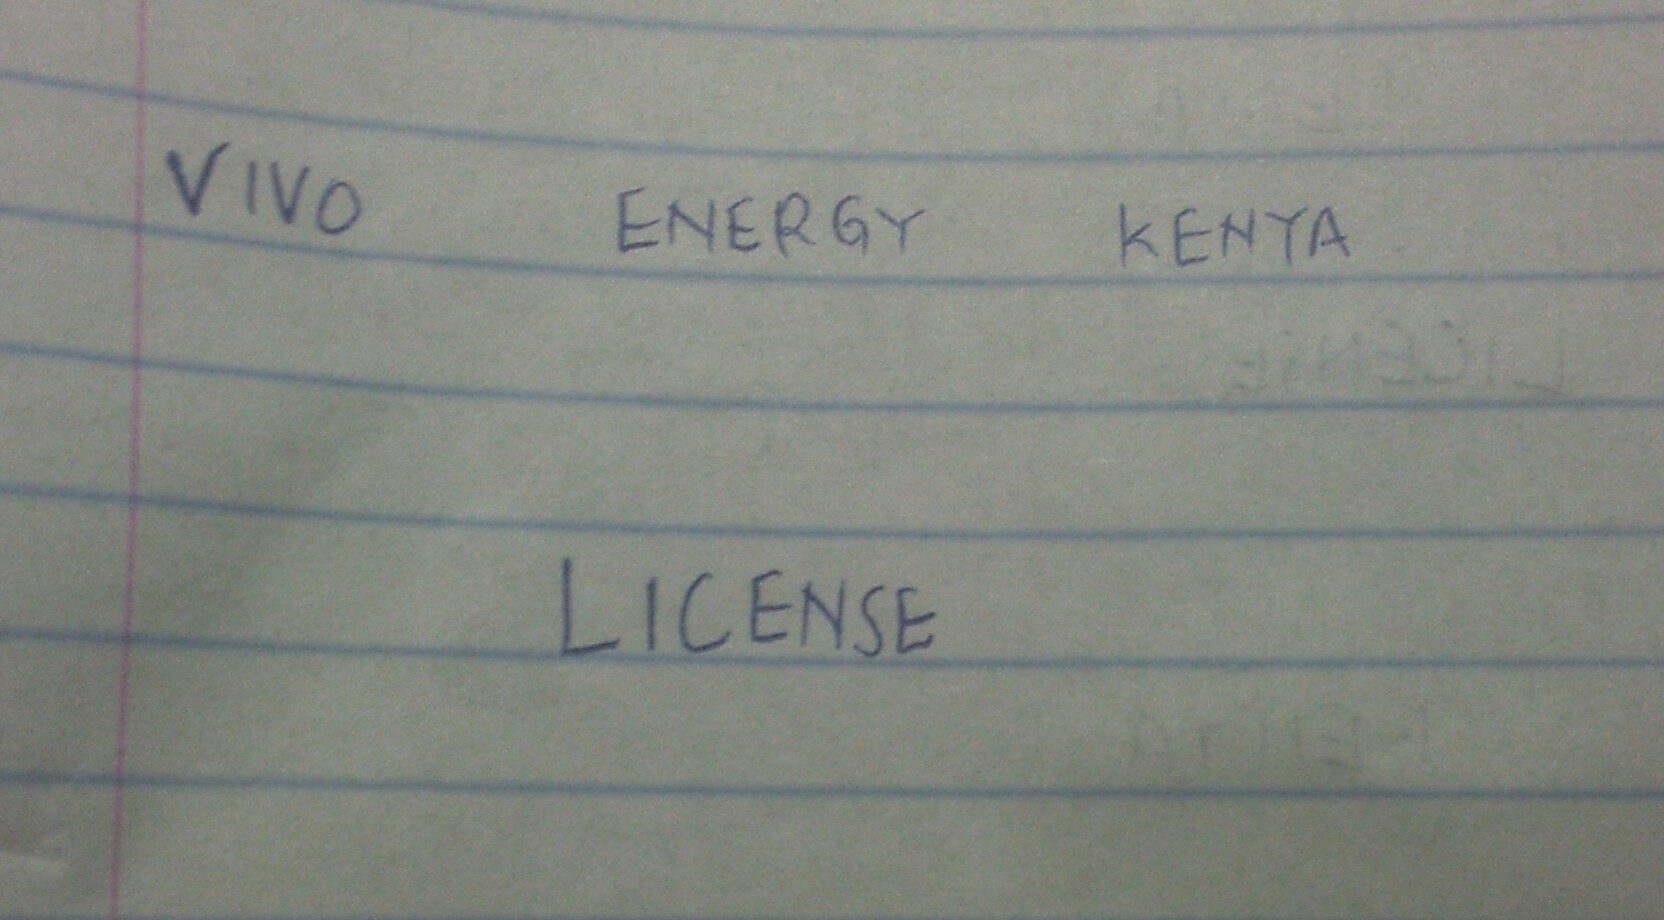 VIVO ENERGY KENYA
LICENSE